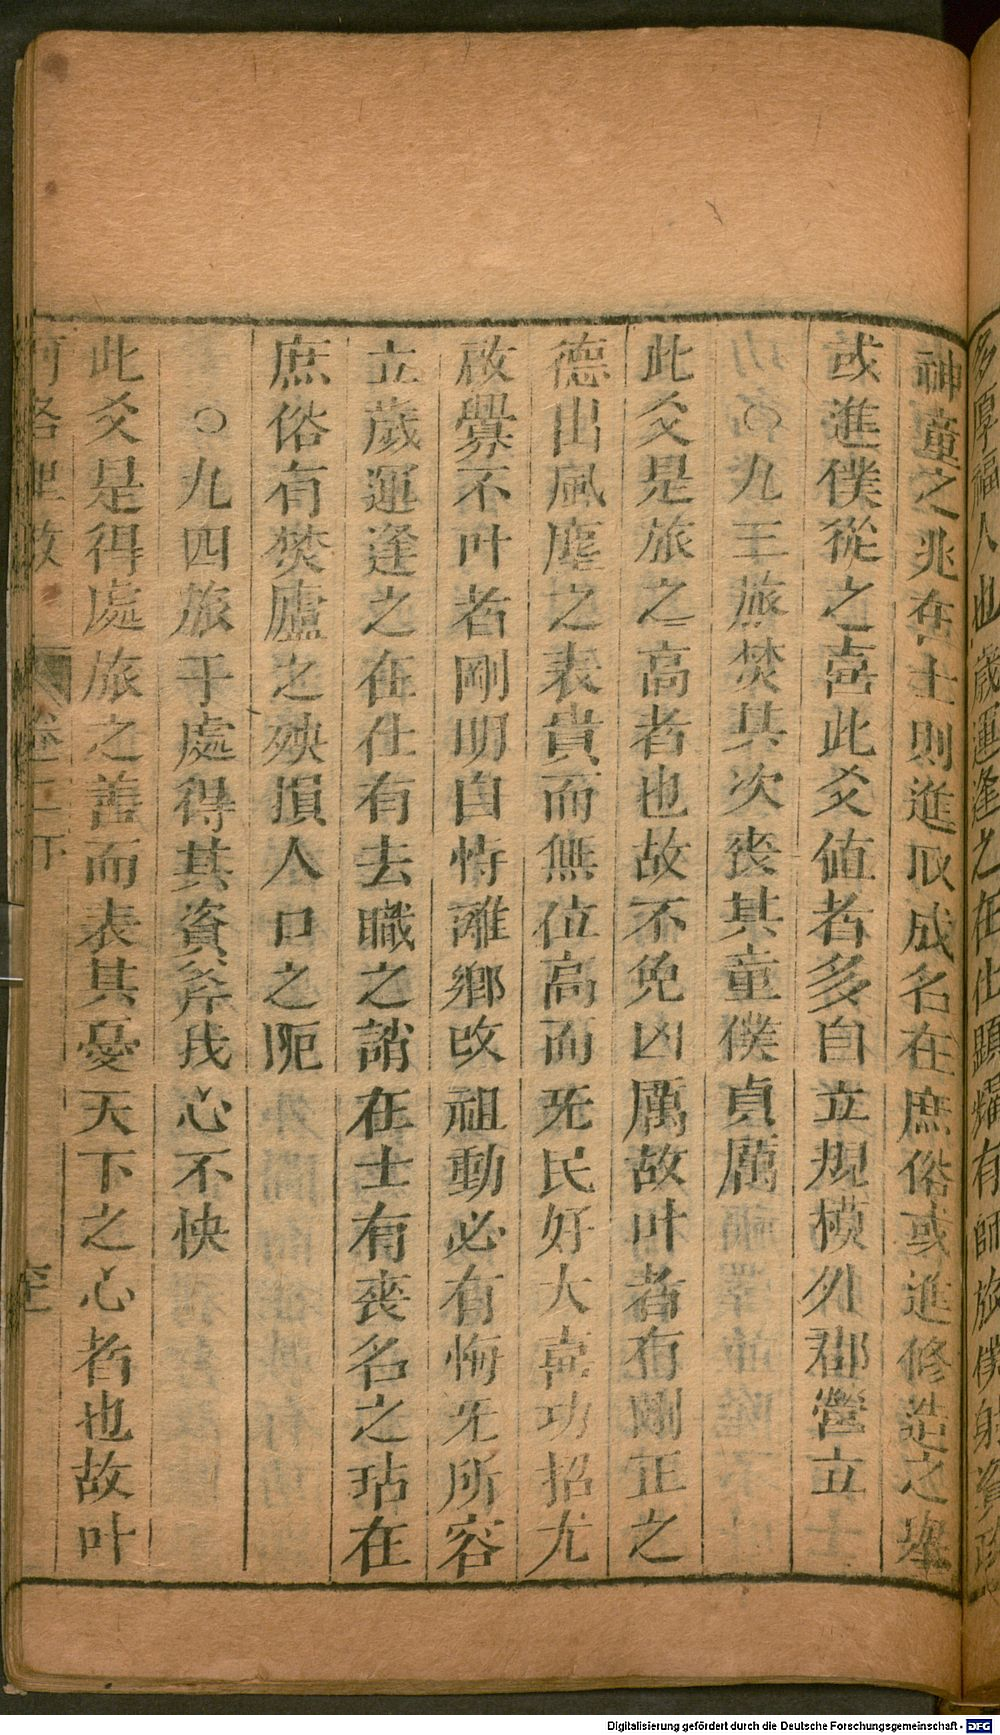 多厚福人也歲運逢之在仕顯耀有師旅僕射資政
神童之兆在士則進取成名在庶俗或進修造之理
或進僕從之喜此爻値者多自立規模外郡營立
○九三旅焚其次喪其童僕貞厲
此爻是旅之高者也故不免凶厲故叶者有剛正之
德出風塵之表貴而無位高而无民好大喜功招尤
啟釁不叶者剛明自恃離鄉改祖動必有悔无所容
立歲運逢之在仕有去職之誚在士有喪名之玷在
庶俗有焚廬之殃損人口之阨
○九四旅于處得其資斧我心不快
此爻是得處旅之善而表其憂天下之心者也故叶
河洛理數 卷二下
Digitalisierung gefördert durch die Deutsche Forschungsgemeinschaft - DFG